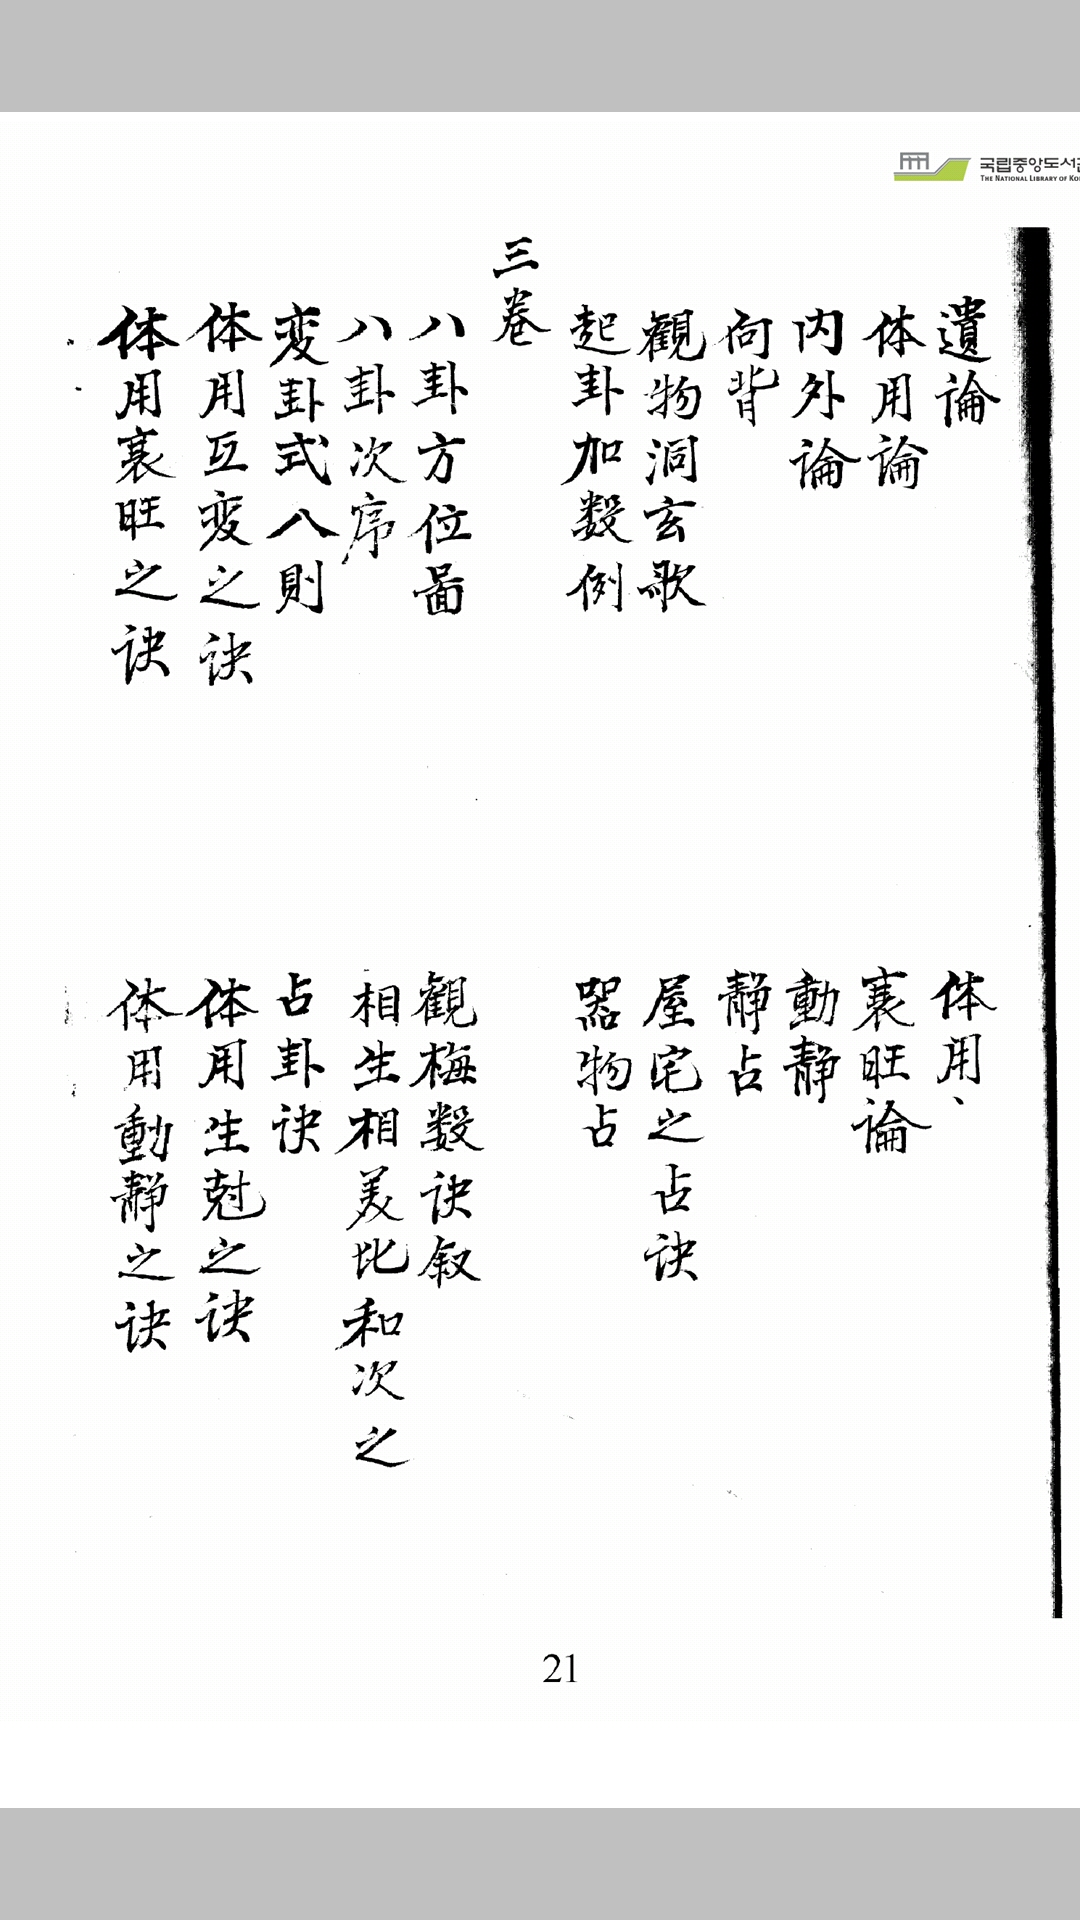 국립중앙도서관
THE NATIONAL LIBRARY OF KO
遺論
体用、
体用論
衰旺論
内外論
動静
向背
静占
觀物洞玄歌
屋宅之占诀
起卦加数例
器物占
三卷
八卦方位啚
觀梅数诀叙
八卦次序
相生相美比和次之
変卦式八則
占卦诀
体用互変之诀
体用生尅之诀
体用衰旺之诀
体用動静之诀
21